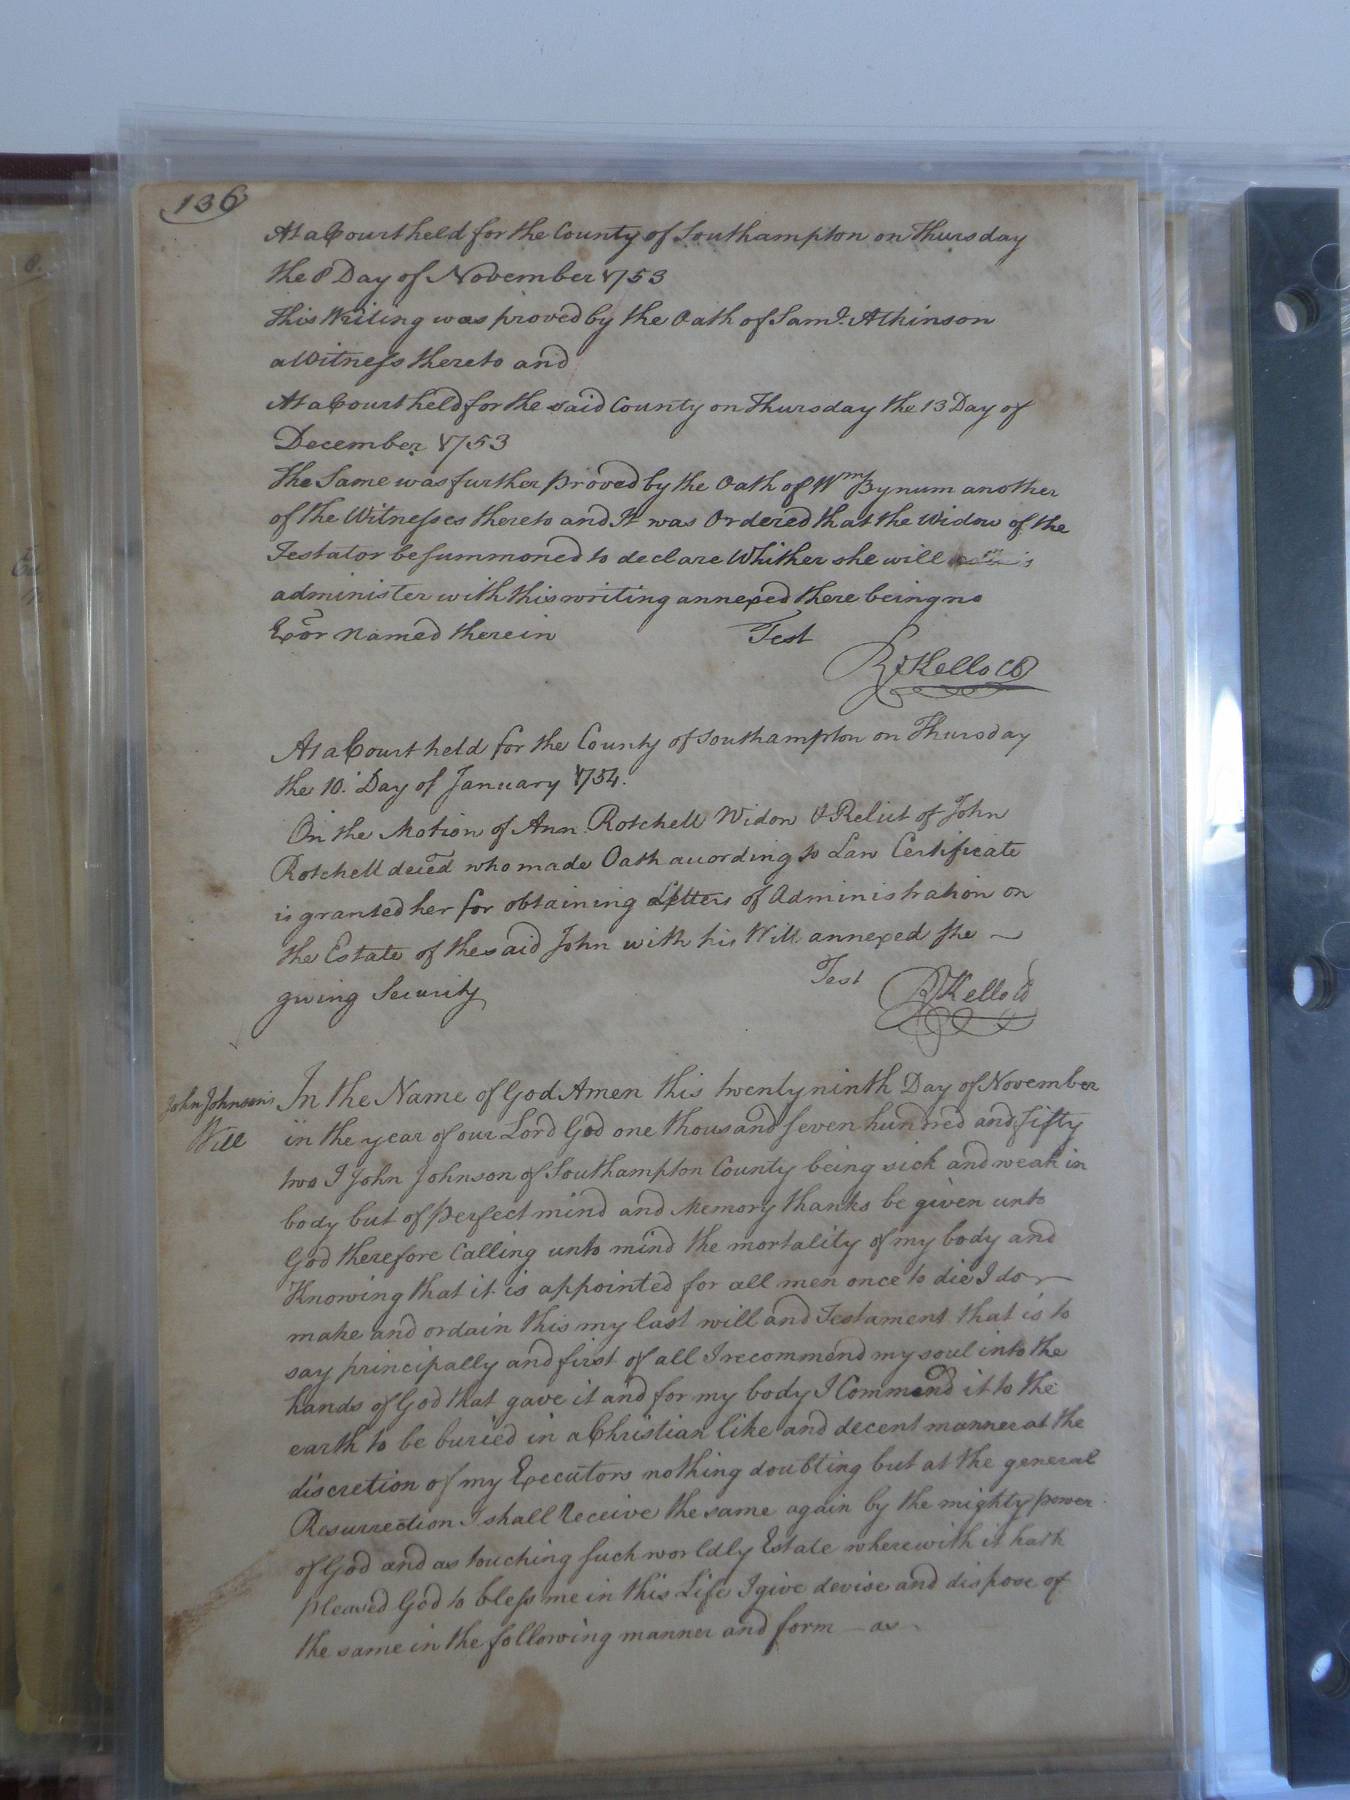 136
At a Court held for the County of Southampton on Thursday
the 8 Day of November 1753
This Writing was proved by the Oath of Saml. Atkinson
a Witness thereto and
At a Court held for the said County on Thursday the 13 Day of
December 1753
The Same was further proved by the Oath of Wm Bynum another
of the Witnesses thereto and It was Ordered that the Widow of the
Testator be summoned to declare Whither she will
administer with this writing annexed there being no
Exor named therein Test
R Kello CC
At a Court held for the County of Southampton on Thursday
the 10. Day of January 1754.
On the Motion of Ann Rotchell Widow & Relict of John
Rotchell deced who made Oath according to Law Certificate
is granted her for obtaining Letters of Administration on
the Estate of the said John with his Will annexed she
giving Security Test R Kello
John Johnson's
Will
In the Name of God Amen this twenty ninth Day of November
in the year of our Lord God one thousand seven hundred and fifty
two I John Johnson of Southampton County being sick and weak in
body but of perfect mind and Memory thanks be given unto
God therefore Calling unto mind the mortality of my body and
Knowing that it is appointed for all men once to die I do
make and ordain this my last will and Testament that is to
say principally and first of all I recommend my soul into the
hands of God that gave it and for my body I Commend it to the
earth to be buried in a Christian like and decent manner at the
discretion of my Executors nothing doubting but at the general
Resurrection I shall Receive the same again by the mighty power
of God and as touching such worldly Estate wherewith it hath
pleased God to bless me in this Life I give devise and dispose of
the same in the following manner and form — as